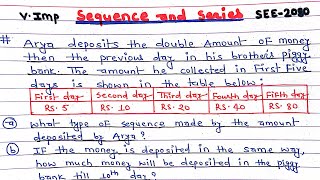 V. Imp Sequence and Series SEE-2080
# Arya deposits the double Amount of money
then the previous day in his brother's piggy
bank. The amount he collected in First Five
days is shown in the table below:
First day Second day Third day Fourth day Fifth day
RS. 5 RS. 10 RS. 20 RS. 40 RS. 80
(a) What type of sequence made by the amount
deposited by Arya?
(b) If the money is deposited in the same way,
how much money will be deposited in the piggy
bank till 10th day?